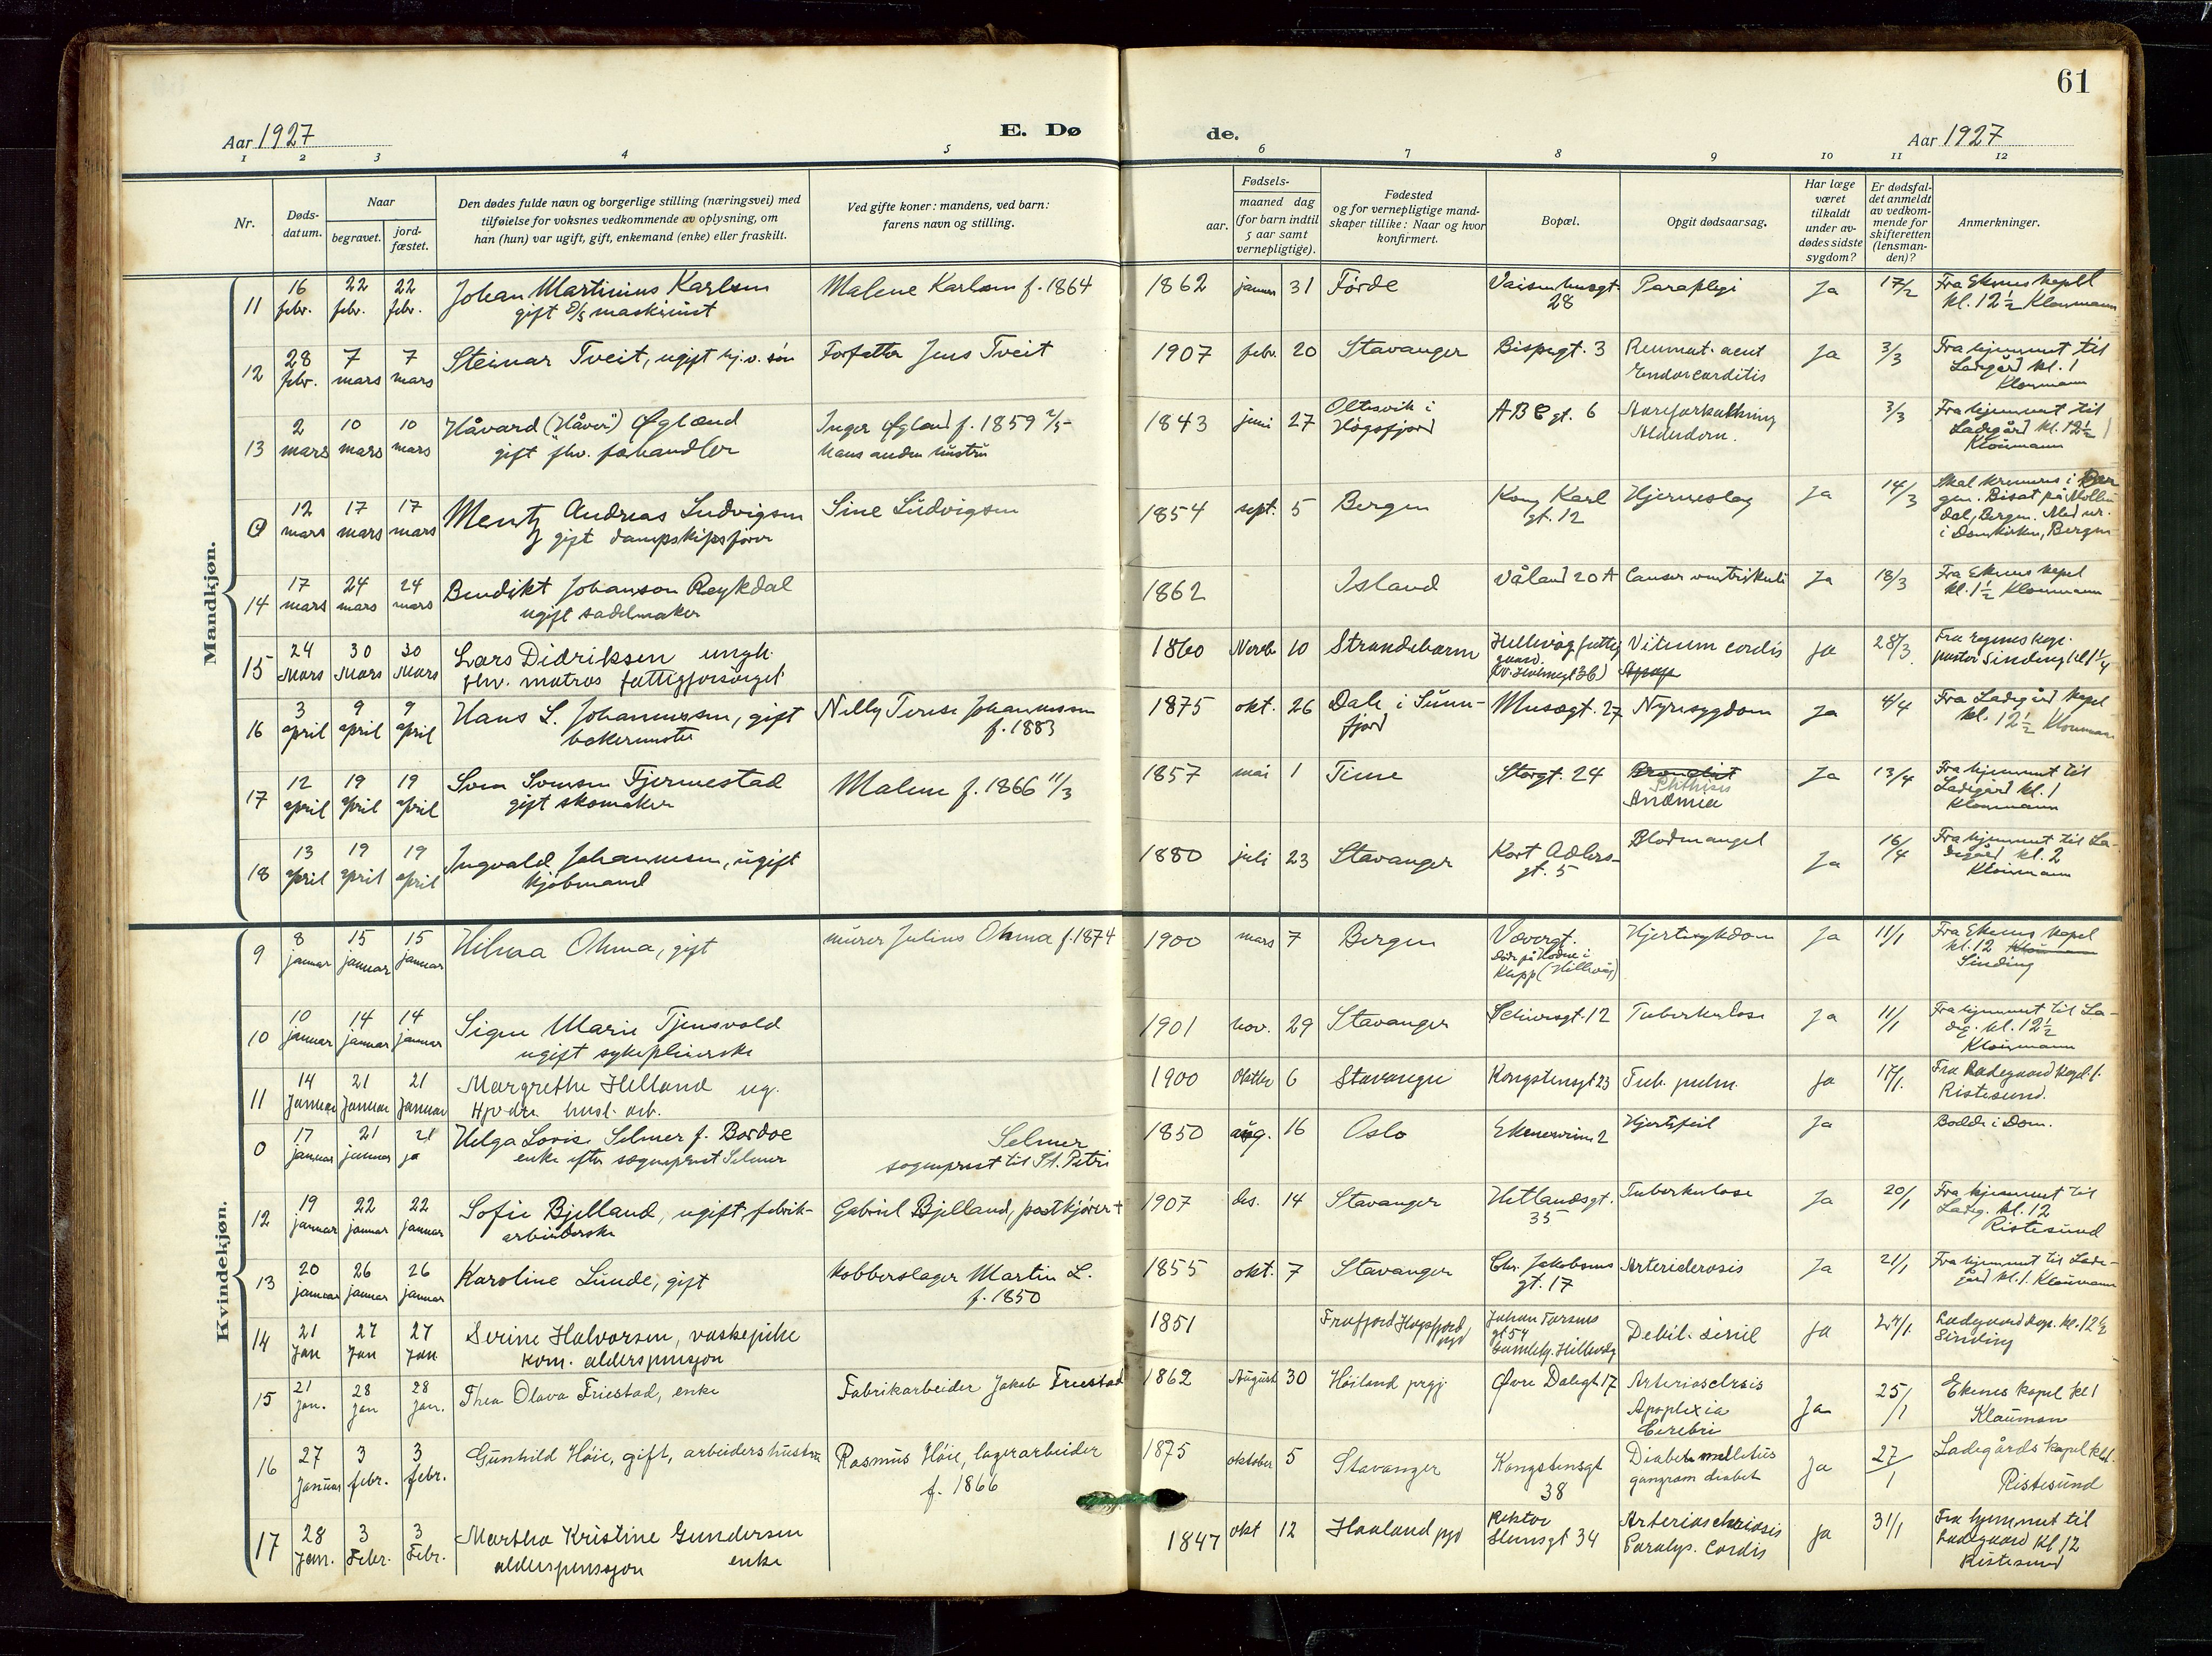 61
Aar 1927
E. Dø
de.
Aar 1927
1 2 3 4 5 6 7 8 9 10 11 12
Nr.
Døds-
datum.
Naar
begravet.
jord-
fæstet.
Den dødes fulde navn og borgerlige stilling (næringsvei) med
tilføielse for voksnes vedkommende av oplysning, om
han (hun) var ugift, gift, enkemand (enke) eller fraskilt.
Ved gifte koner: mandens, ved barn:
farens navn og stilling.
Fødsels-
aar.
maaned dag
(for barn indtil
5 aar samt
vernepligtige).
Fødested
og for vernepligtige mand-
skaper tillike: Naar og hvor
konfirmert.
Bopæl.
Opgit dødsaarsag.
Har læge
været
tilkaldt
under av-
dødes sidste
sygdom?
Er dødsfal-
det anmeldt
av vedkom-
mende for
skifteretten
(lensman-
den)?
Anmerkninger.
Mandkjøn.
11 16 febr. 22 febr. 22 febr. Johan Martinius Karlsen
gift maskinist
Malene Karlsen f. 1864
1862 januar 31 Førde Vaisenhusgt 28 Paraplegi Ja 17/2
Fra Ekenes kapell
kl. 12 1/2 Kloumann
12 28 febr. 7 mars 7 mars Steinar Tveit, ugift hj.v. søn
Forfatter Jens Tveit
1907 febr. 20 Stavanger Bispegt. 3 Reumat. acut
Endocarditis
Ja 3/3
Fra hjemmet til
Ladegård kl. 1
Kloumann
13 2 mars 10 mars 10 mars Håvard ("Håver") Øgland
gift fhv. forhandler
Inger Øgland f. 1859 2/5
hans anden hustru
1843 juni 27 Oltesvik i
Høgsfjord
ABC gt. 6 Aareforkalkning
Alderdom.
3/3
Fra hjemmet til
Ladegård kl. 12 1/2
Kloumann
0 12 mars 17 mars 17 mars Mentz Andreas Ludvigsen
gift dampskipsfører
Sine Ludvigsen
1854 sept. 5 Bergen Kong Karl
gt. 12
Hjerneslag Ja 14/3
Skal kremeres i Ber
gen. Bisat på Møllen
dal, Bergen.
i Domkirken, Bergen
14 17 mars 24 mars 24 mars Bendikt Johanson Reykdal
ugift sadelmaker
1862 Island Våland 20 A Cancer ventrikuli Ja 18/3
Fra Ekenes kapel
kl. 1 1/2 Kloumann
15 24 Mars 30 Mars 30 Mars Lars Didriksen ungk.
fhv. matros fattigforsørget
1860 Novb 10 Strandebarm Hillevåg fattig
gaard.
Vitium cordis
ja 28/3
pastor Sinding kl 1 1/4
16 3 april 9 april 9 april Hans L. Johannessen, gift
bakermester
Nelly Terese Johannessen
f. 1883
1875 okt. 26 Dale i Sunn-
fjord
Musegt. 27 Nyresygdom ja 4/4
Fra Ladegård kapel
kl. 12 1/2 Kloumann
17 12 april 19 april 19 april Sven Svensen Fjermestad
gift skomaker
Malene f. 1866 11/3
1857 mai 1 Time Storgt. 24 Bronchit
Phthisis
Anæmia
Ja 13/4
Fra hjemmet til
Ladegård kl. 1
Kloumann
18 13 april 19 april 19 april Ingvald Johannessen, ugift
kjøbmand
1880 juli 23 Stavanger Kort Adlers-
gt. 5
Blodmangel
Ja 16/4
Fra hjemmet til La-
degård kl. 2
Kloumann
Kvindekjøn.
9 8 januar 15 januar 15 januar Hilma Ohma, gift
murer Julius Ohma f. 1874
1900 mars 7 Bergen Vævergt.
døde på Hodne i
Klepp (Hillevåg)
Hjertesykdom Ja 11/1
Fra Ekenes kapel
kl. 12 Kloumann
Sinding
10 10 januar 14 januar 14 januar Signe Marie Tjensvold
ugift sykepleierske
1901 nov. 29 Stavanger Schivesgt. 12 Tuberkulose Ja 11/1
Fra hjemmet til La-
dg. kl. 12 1/2
Kloumann
11 14 Januar 21 Januar 21 Januar Margrethe Helland ug.
Hjv. dtr. husl. arb.
1900 Oktbr 6 Stavanger Kongstensgt 23 Tub. pulm. ja 17/1.
Fra Ladegaard kapel 1.
Ristesund.
0 17 januar 21 januar 21 ja Helga Lovise Selmer f. Bordoe
enke efter sogneprest Selmer
Selmer
sogneprest til St. Petri
1850 aug. 16 Oslo Ekenesvein 2 Hjertefeil Ja
Bodde i Dom.
12 19 januar 22 januar 22 januar Sofie Bjelland, ugift fabrik-
arbeiderske
Gabriel Bjelland, postkjører +
1907 des. 14 Stavanger Hetlandsgt.
35
Tuberkulose Ja 20/1
Fra hjemmet til
Ladeg. kl. 12
Ristesund
13 20 januar 26 januar 26 januar Karoline Lunde, gift
kobberslager Martin L.
f. 1850
1855 okt. 7 Stavanger Chr. Jakobsens
gt. 17
Arteriderosis Ja 21/1
Fra hjemmet til Lade-
gård kl. 1. Kloumann
14 21 Jan 27 Jan 27 Jan Serine Halvorsen, vaskepike
kom. alderspensjon
1851 Frafjord Høgsfjord,
pgd
Johan Torsens
gt 54
Gamlehj. Hillevåg
Debil. senil ja 24/1.
Ladegaard kap. kl. 12 1/2
Sinding
15 21 Jan. 28 Jan 28 Jan. Thea Olava Friestad, enke
Fabrikarbeider Jakob Friestad
1862 August 30 Høiland prgj Øvre Dalegt 17 Arteriosclrsis
Apoplexia
Cerebri
Ja 25/1
Ekenes kapel kl 1
Klauman
16 27 Januar 3 febr. 3 febr. Gunhild Høie, gift, arbeiders hustru
Rasmus Høie, lagerarbeider
f. 1866
1875 oktober 5 Stavanger Kongstensgt
38
Diabet mellitus
gangræn diabet
ja 27/1
Ladegårds kapel kl 1.
Ristesund
17 28 Jan. 3 Febr. 3 Febr. Martha Kristine Gundersen
alderspenssjon enke
1847 okt 12 Haaland pgd Rektor
Steensgt 34
Arterioschriosis
Paralys. Cordis
ja 31/1
Fra hjemmet til
Ladegaard Kl 12
Ristesund